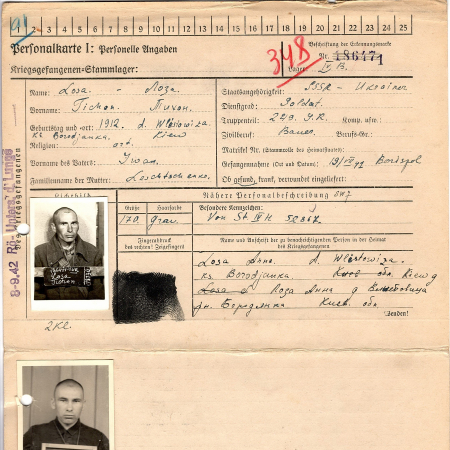 1 2 3 4 5 6 7 8 9 10 11 12 13 14 15 16 17 18 19 20 21 22 23 24 25
Personalkarte I: Personelle Angaben
Beschriftung der Erkennungsmarke
348
Nr. 186471
Kriegsgefangenen-Stammlager:
Lager: IV B.
Name: Losa. - Лоза.
Staatsangehörigkeit: SSSR - Ukrainer
Vorname: Tichon. Тихон.
Dienstgrad: Soldat.
Geburtstag und -ort: 1912. d. Wlostowiza.
Truppenteil: 249. J.R. Komp. usw.:
Ks. Borodjanka. Kiew
Zivilberuf: Bauer. Berufs-Gr.:
Religion: ort.
Matrikel Nr. (Stammrolle des Heimatstaates):
Vorname des Vaters: Iwan.
Gefangennahme (Ort und Datum):
Familienname der Mutter:
Ob gesund, krank, verwundet eingeliefert:
Nähere Personalbeschreibung
Größe Haarfarbe
Besondere Kennzeichen:
170. Grau.
Von St IV H
Fingerabdruck
des rechten! Zeigefingers
Name und Anschrift der zu benachrichtigenden Person in der Heimat
des Kriegsgefangenen
Losa Anna. d. Wlostowiza.
ks. Borodjanka. Kiew
Лоза Анна д
рн. Бородянка. Киев. обл.
Wenden!
2Kl.
8-9.42 Rö.-Unters. d. Lunge